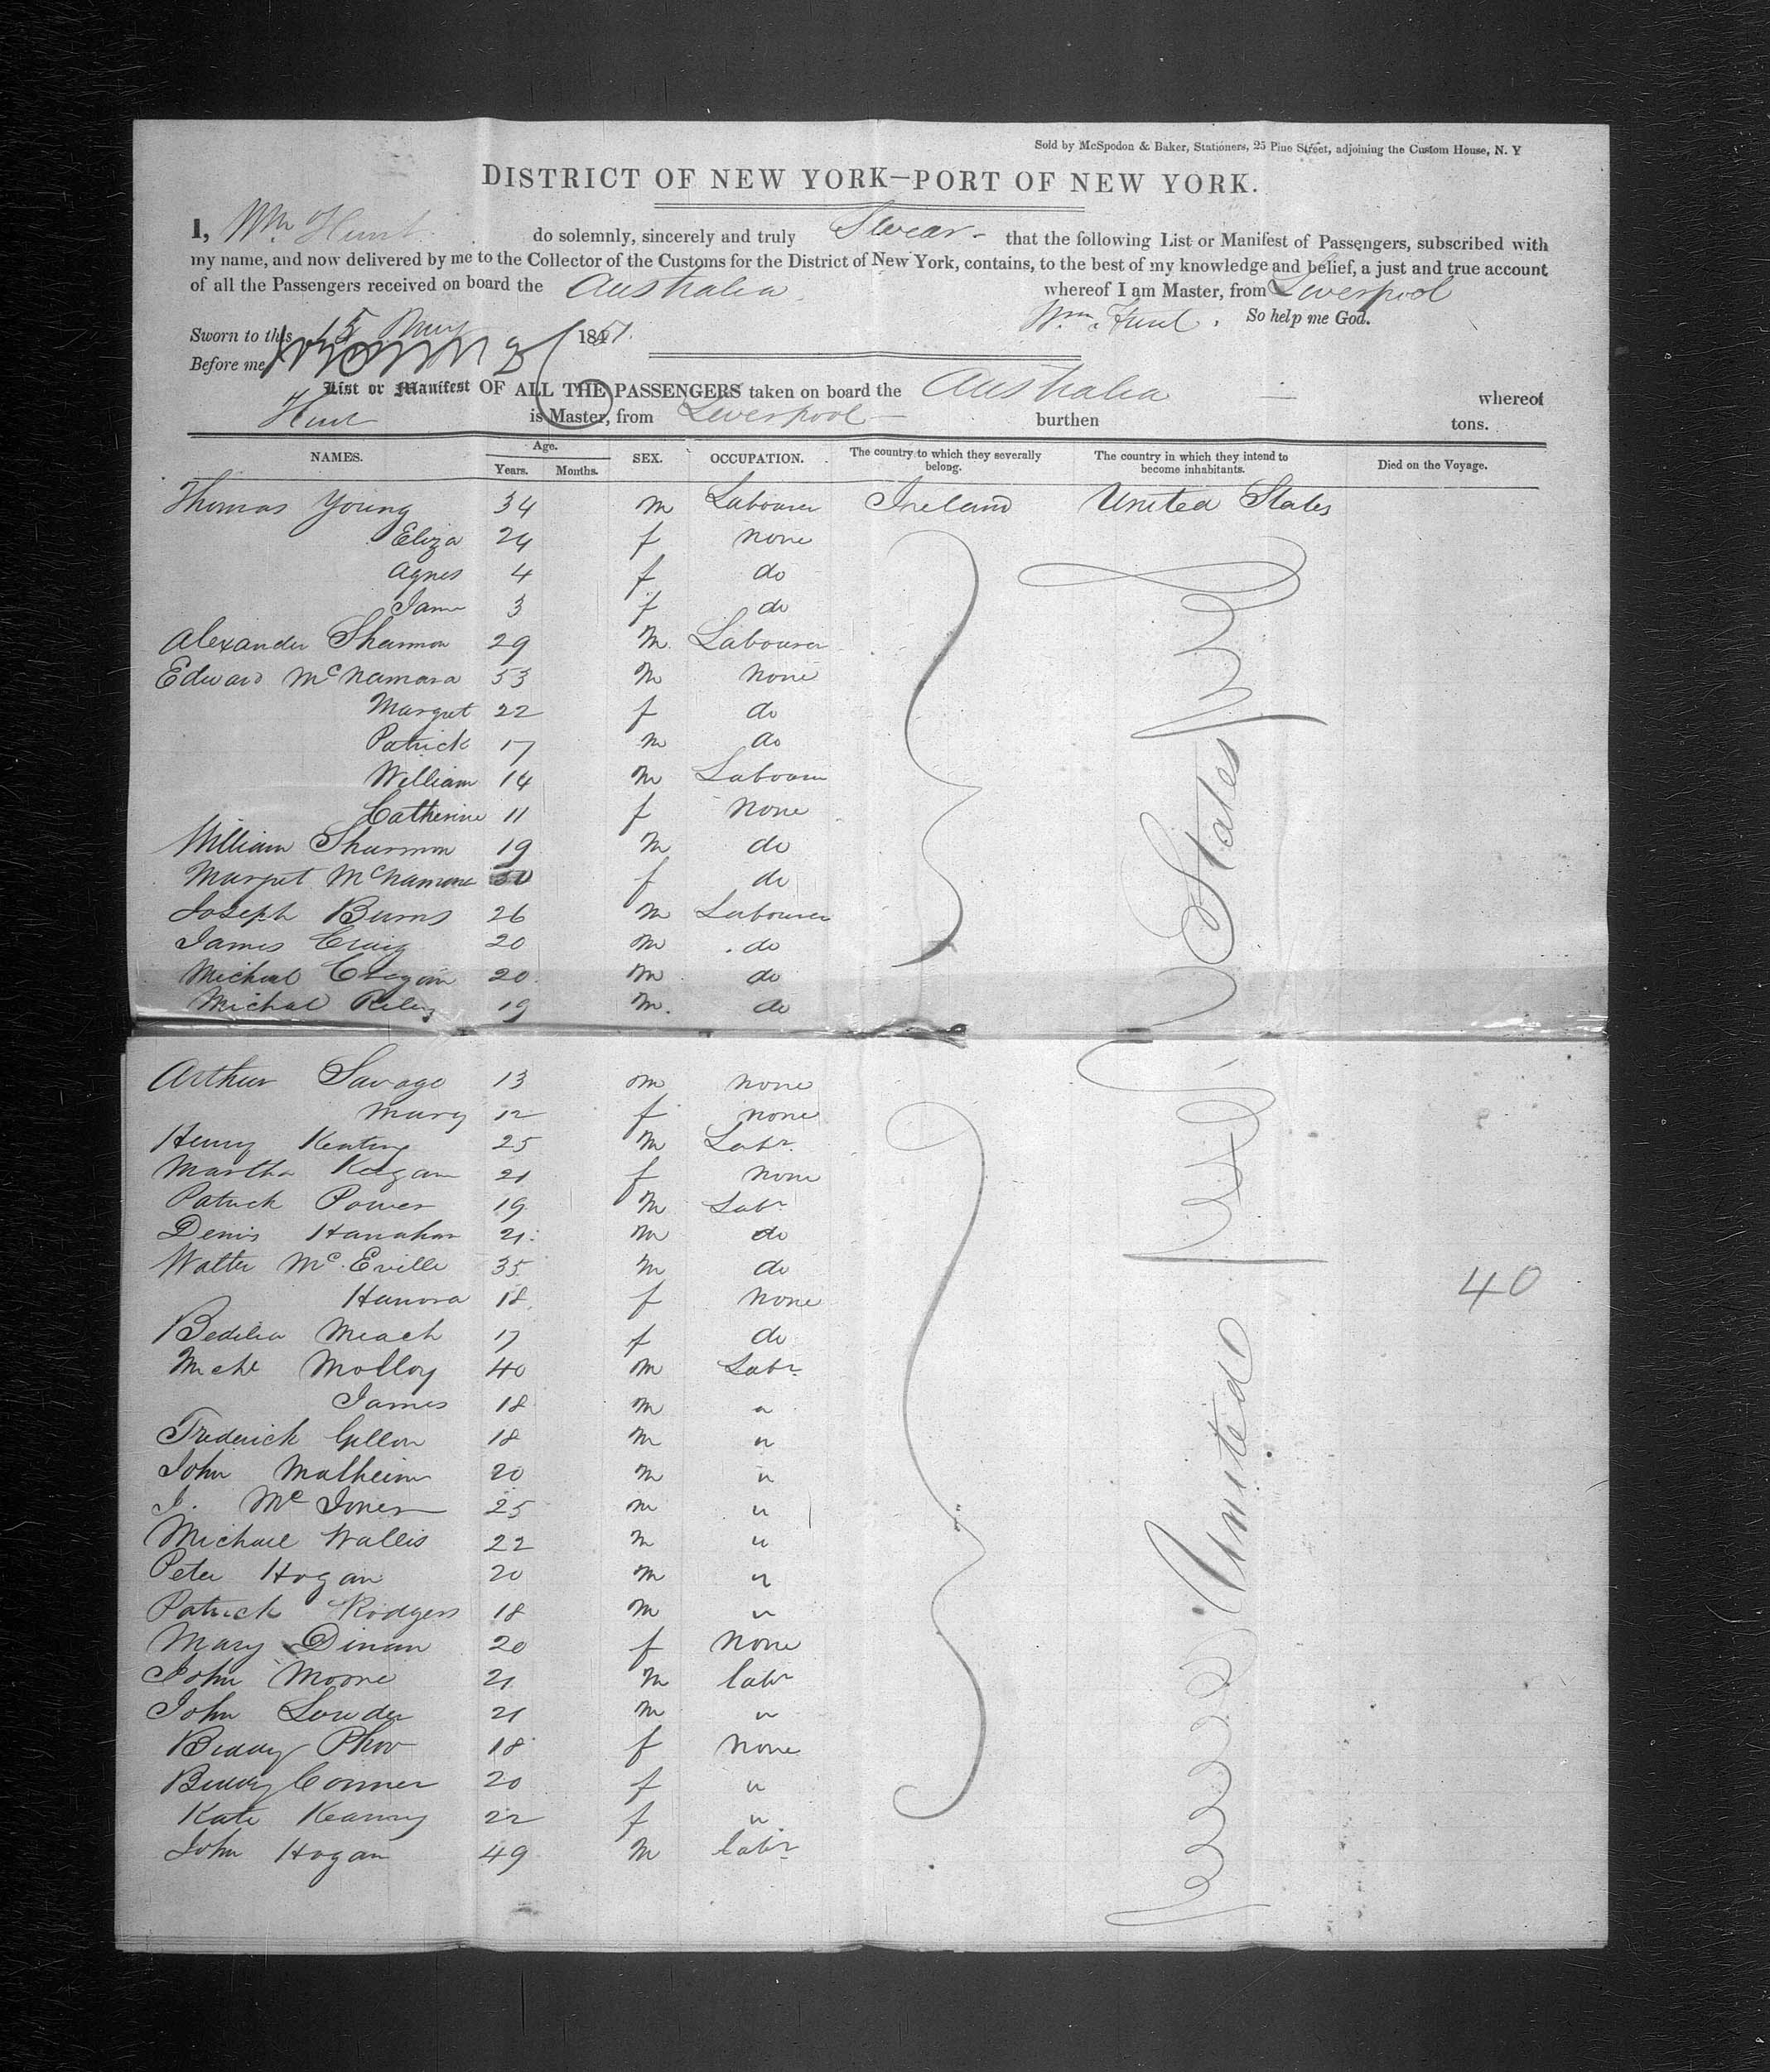 Sold by McSpedon & Baker, Stationers, 25 Pine Street, adjoining the Custom House, N. Y
DISTRICT OF NEW YORK—PORT OF NEW YORK.
I, Wm Hunt do solemnly, sincerely and truly Swear that the following List or Manifest of Passengers, subscribed with
my name, and now delivered by me to the Collector of the Customs for the District of New York, contains, to the best of my knowledge and belief, a just and true account
of all the Passengers received on board the Australia whereof I am Master, from Liverpool
Wm. Hunt. So help me God.
Sworn to this 15 May 1851.
Before me
List or Manifest OF ALL THE PASSENGERS taken on board the Australia whereof
Hunt is Master, from Liverpool burthen tons.
NAMES. Age. Years. Months. SEX. OCCUPATION. The country to which they severally belong. The country in which they intend to become inhabitants. Died on the Voyage.
Thomas Young 34 m Labourer Ireland United States
Eliza 24 f none
Agnes 4 f do
Jane 3 f do
Alexander Shannon 29 m Labourer
Edward McNamara 53 m none
Margret 22 f do
Patrick 17 m do
William 14 m Labourer
Catherine 11 f none
William Shannon 19 m do
Margret McNamara 30 f do
Joseph Burns 26 m Labourer
James Craig 20 m do
Michael 20 m do
Michael Riley 19 m. do
Arthur Savage 13 m none
Mary 12 f none
Henry Keating 25 m Labr.
Martha Keegan 21 f none
Patrick Power 19 m Labr
Denis Hanahan 21 m do
Walter Mc.Eville 35 m do
Hanora 18 f none
Bedelia Meach 17 f do
Michl Molloy 40 m Labr
James 18 m "
Frederick Gillon 18 m "
John 20 m "
J. Mc 25 m "
Michael Wallis 22 m "
Peter Hogan 20 m "
Patrick Rodgers 18 m "
Mary Dinan 20 f none
John Moone 21 m labr
John 21 m "
Biddy 18 f none
Biddy Conner 20 f "
Kate Kearny 22 f "
John Hogan 49 m labr
United States
40